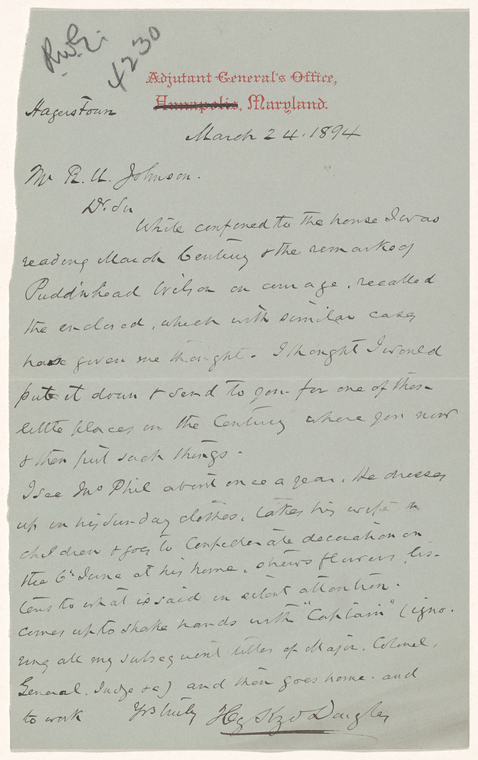 4230
Adjutant General's Office,
Annapolis, Maryland.
Hagerstown
March 24. 1894
Mr R. U. Johnson.
Dr. Sir
While confined to the house I was
reading March Century & the remarks of
Pudd'nhead Wilson on courage, recalled
the enclosed, which with similar cases
have given me thought. I thought I would
put it down & send to you for one of those
little places in the Century where you now
& then put such things.
I see Phil about once a year. He dresses
up in his Sunday clothes, takes his wife &
children & goes to Confederate decoration on
the 6th June at his home, strews flowers, lis-
tens to what is said in silent attention.
comes up to shake hands with "Captain" (igno-
ring all my subsequent titles of Major, Colonel,
General, Judge &c) and then goes home. and
to work Yrs truly Hy Kyd Douglas